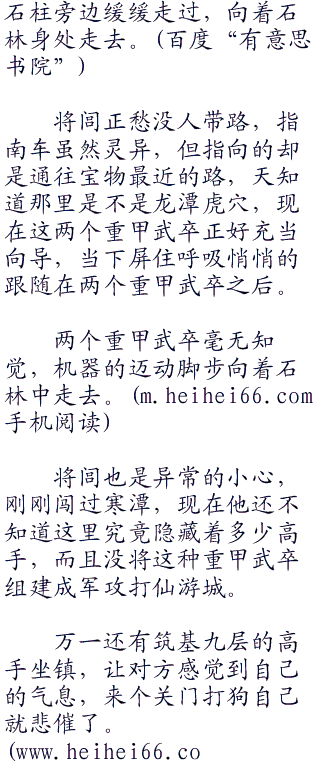 石柱旁边缓缓走过，向着石
林身处走去。(百度“有意思
书院”)
将闾正愁没人带路，指
南车虽然灵异，但指向的却
是通往宝物最近的路，天知
道那里是不是龙潭虎穴，现
在这两个重甲武卒正好充当
向导，当下屏住呼吸悄悄的
跟随在两个重甲武卒之后。
两个重甲武卒毫无知
觉，机器的迈动脚步向着石
林中走去。(m.heihei66.com
手机阅读)
将闾也是异常的小心，
刚刚闯过寒潭，现在他还不
知道这里究竟隐藏着多少高
手，而且没将这种重甲武卒
组建成军攻打仙游城。
万一还有筑基九层的高
手坐镇，让对方感觉到自己
的气息，来个关门打狗自己
就悲催了。
(www.heihei66.co